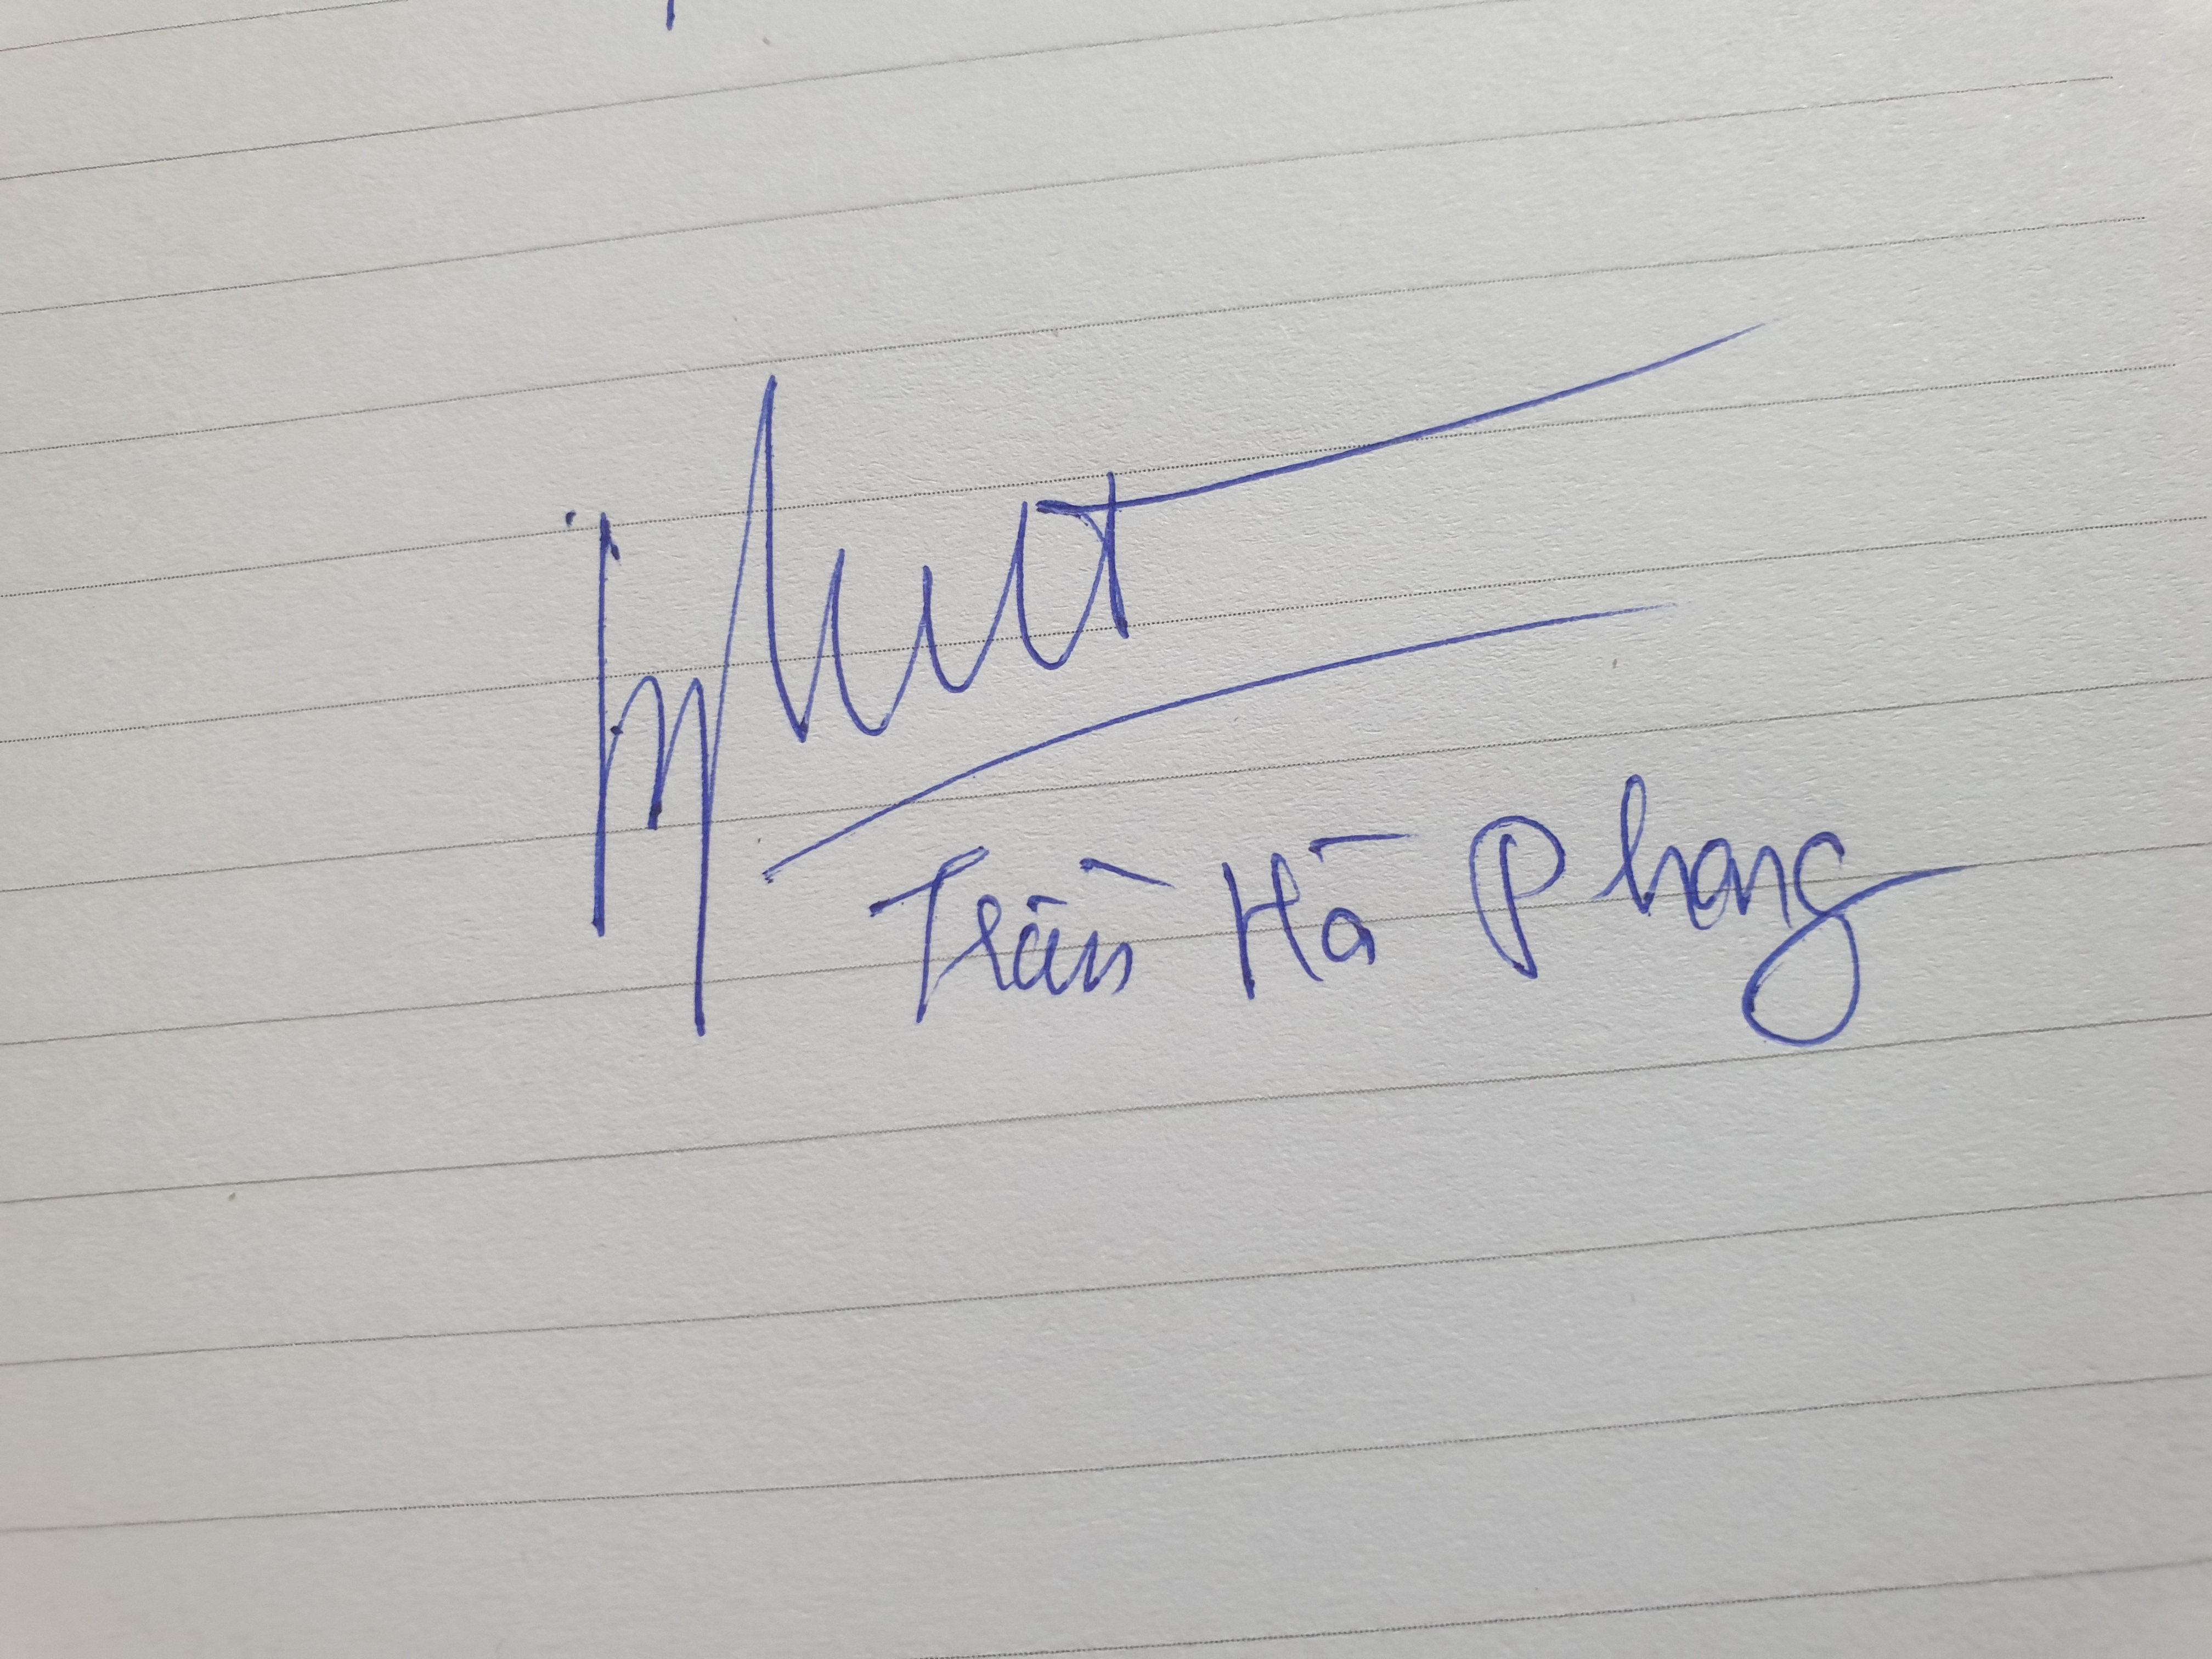 Trần Hà Phong